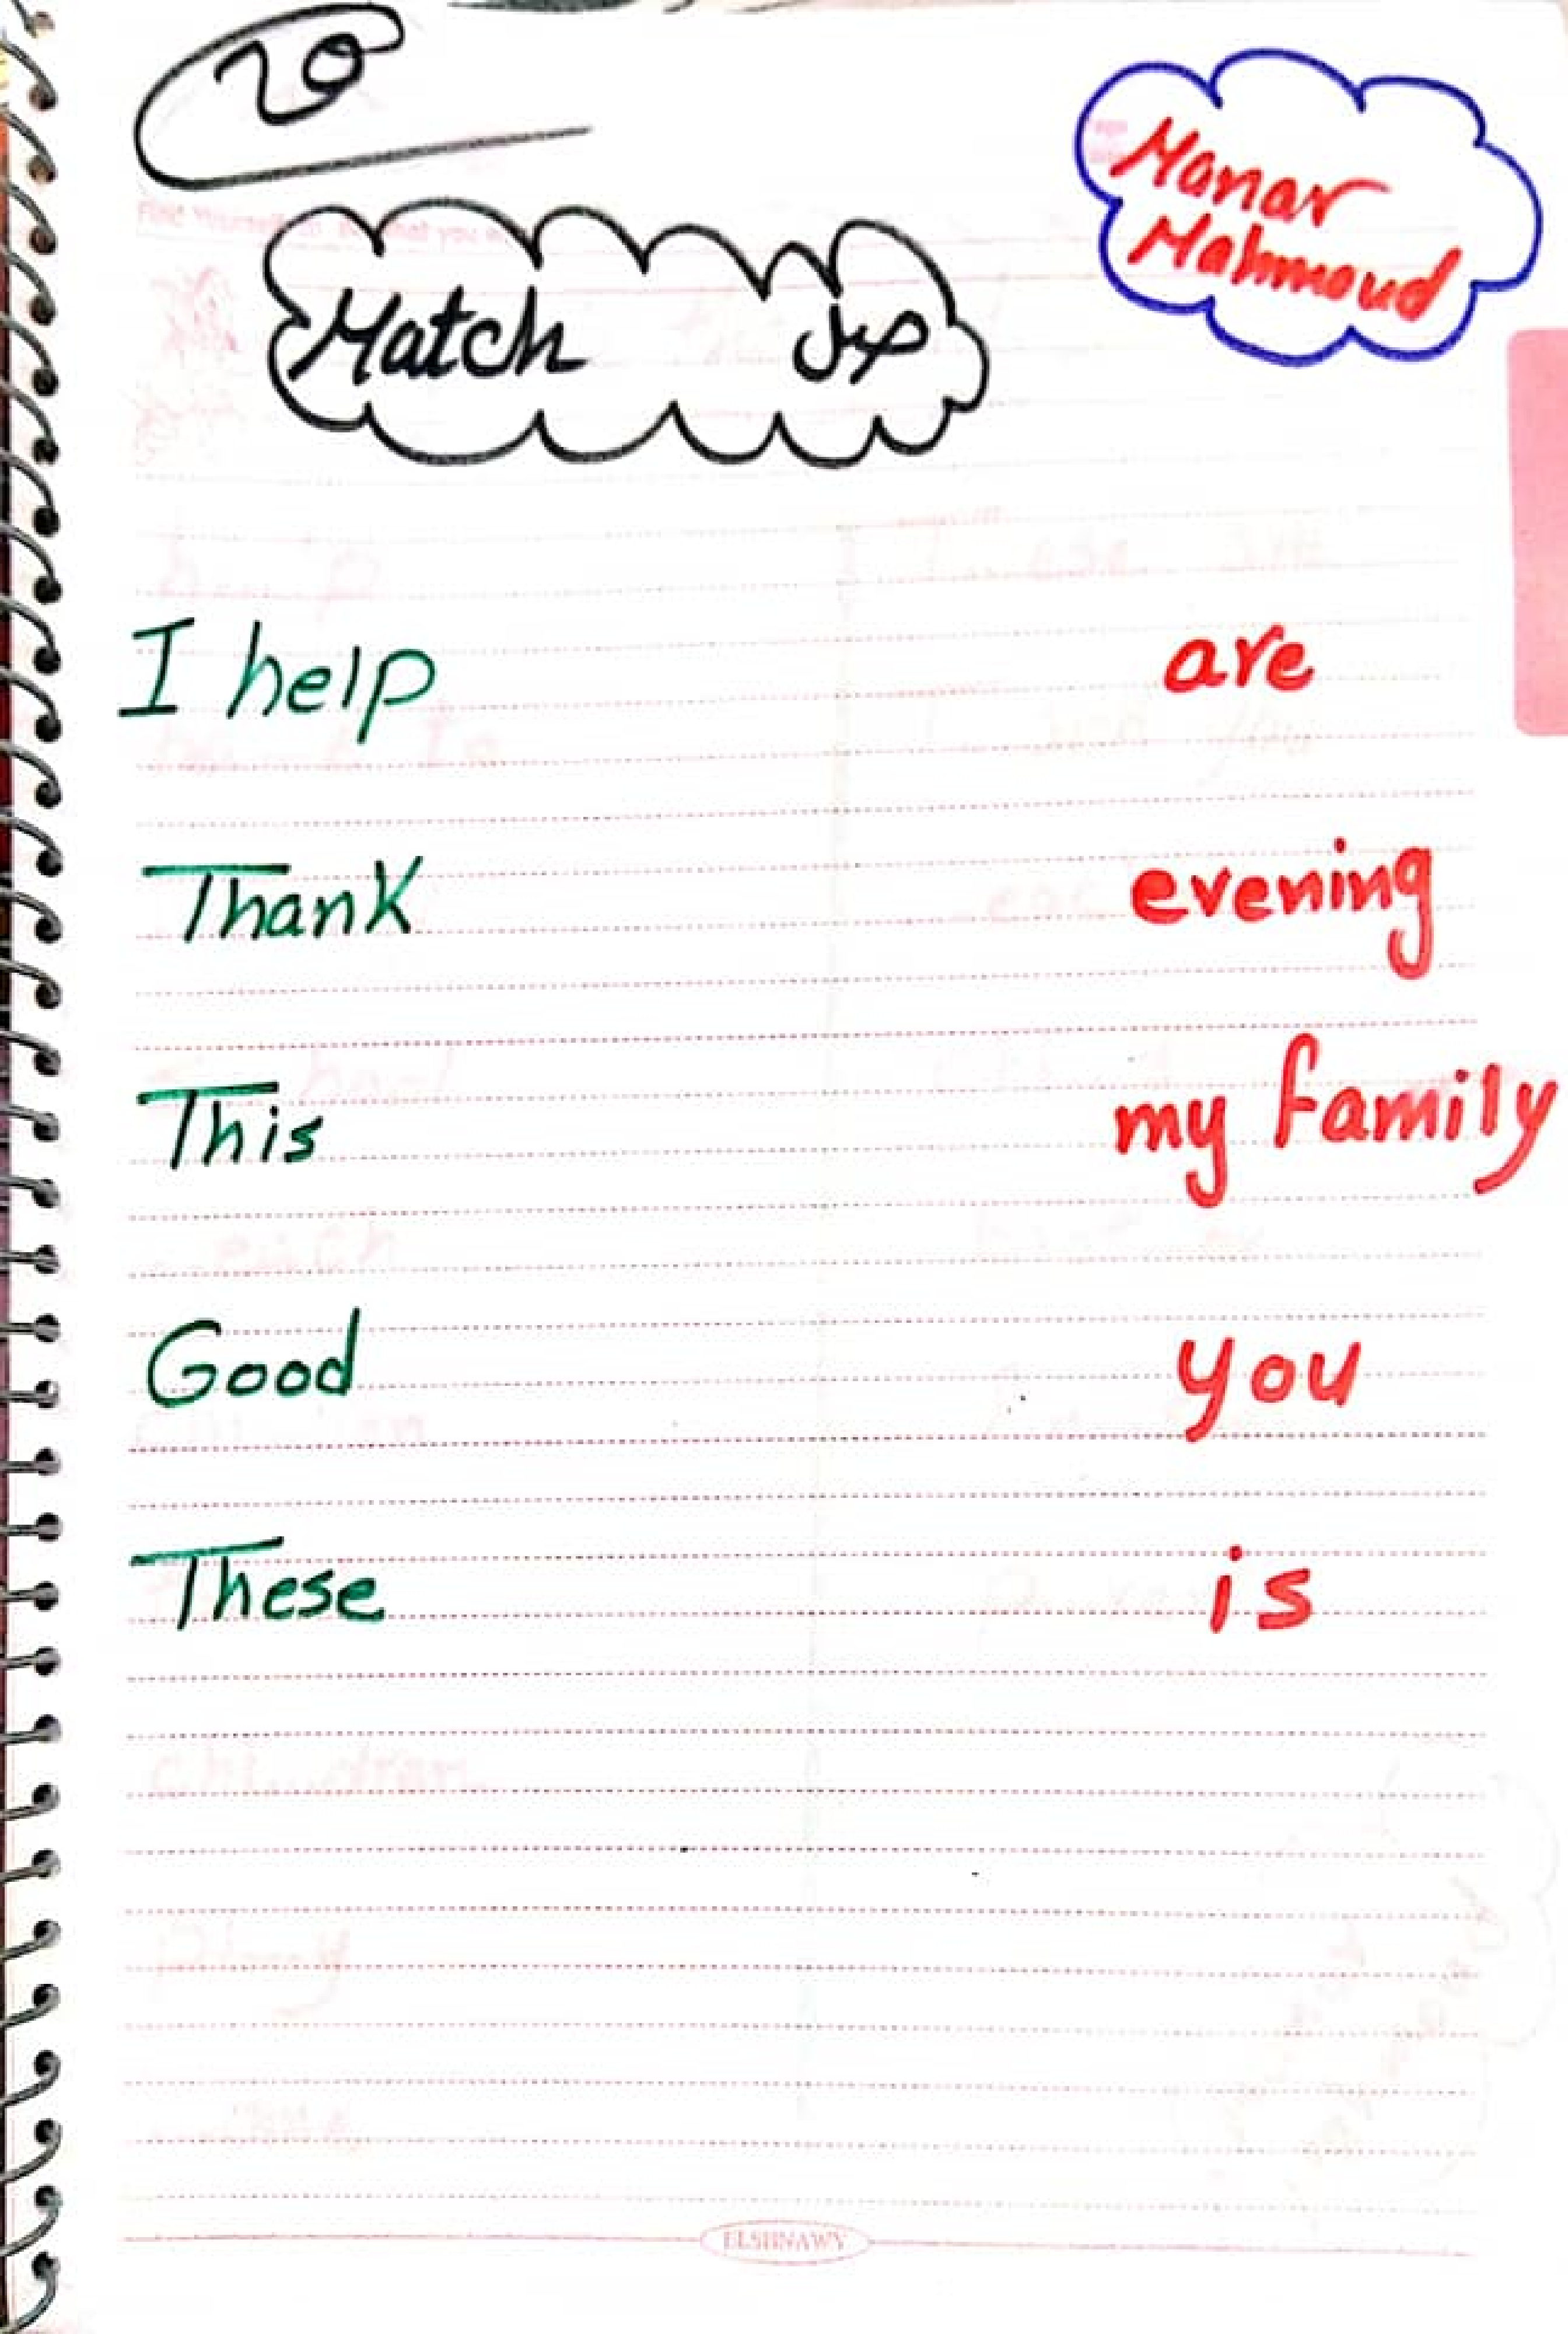 20
Manar
Mahmoud
Match صل
I help are
Thank evening
This my family
Good you
These is
ELSHNAWY